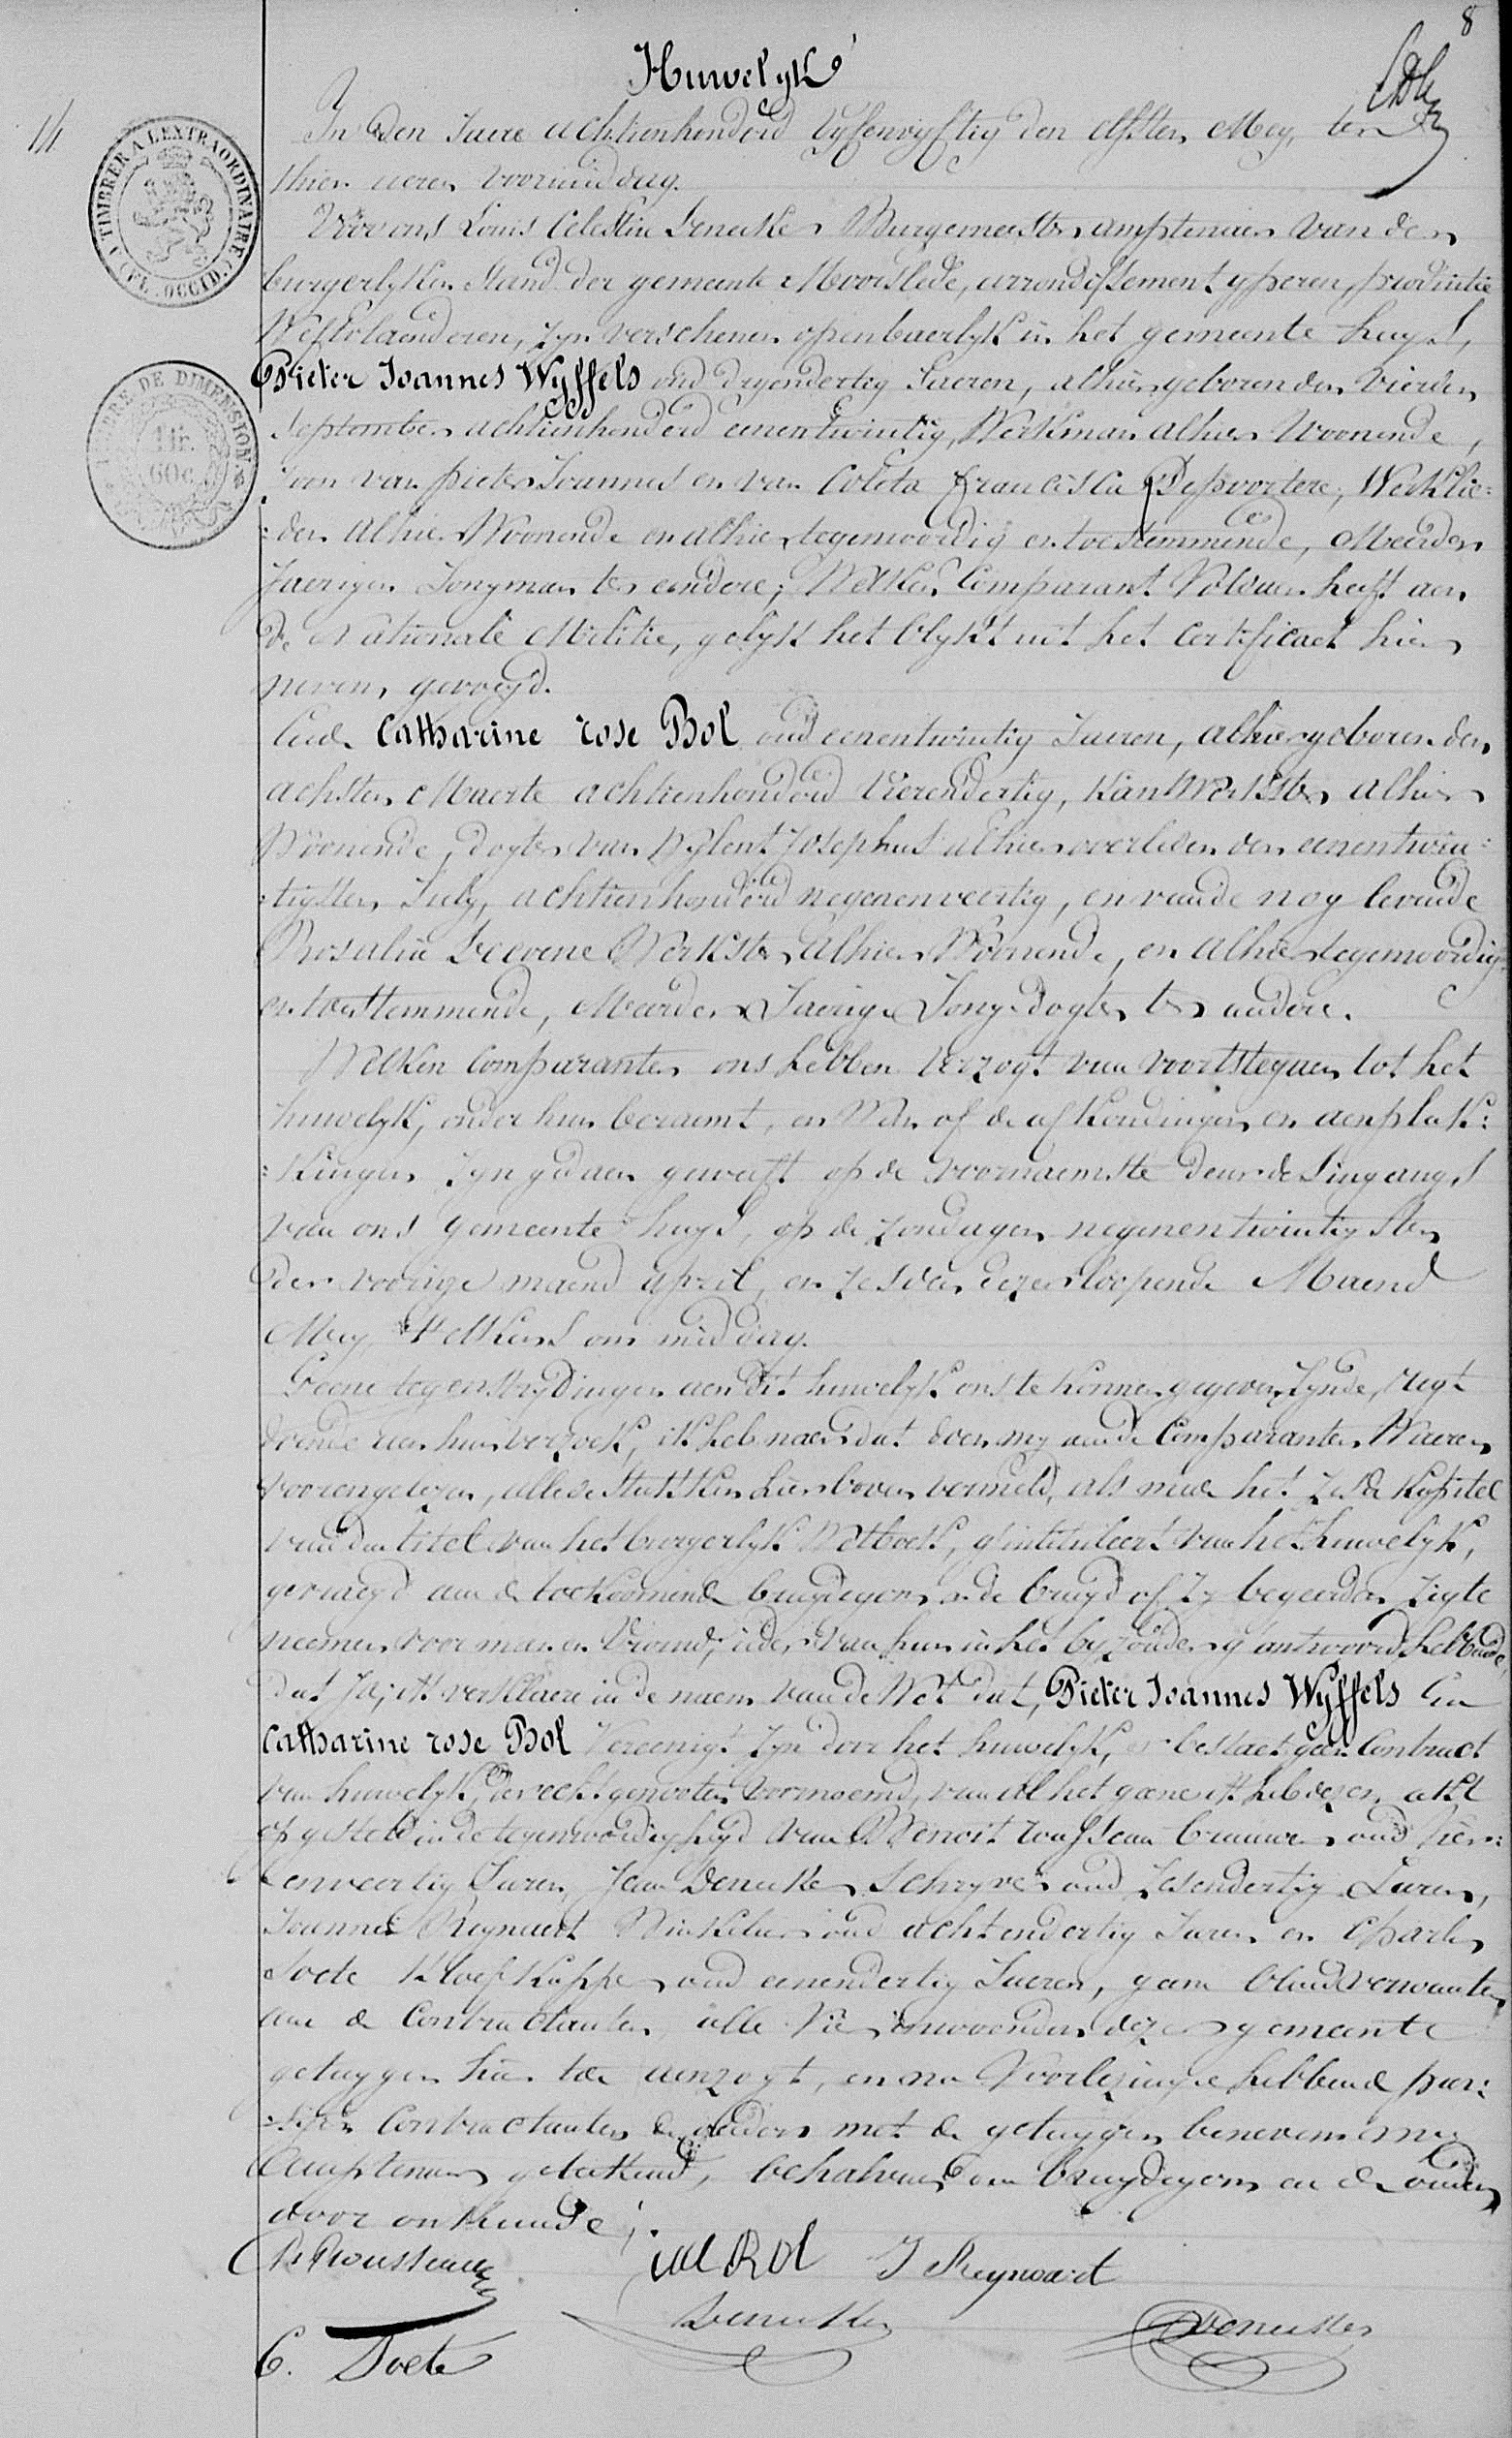 8
Huwelyk
14
In den Jaere achtienhonderd vyfenvyftig den elfsten Mey, ten
thien ueren voormiddag.
Voor ons Louis Celestin Denecker Burgemeester amptenaer van den
burgerlyken Stand der gemeente Moorslede, arrondissement yperen, provintie
Westvlaenderen, zyn verschenen openbaerlyk in het gemeente huys,
Pieter Joannes Wyffels oud dryendertig Jaeren, alhier geboren den vierden
September achtienhonderd eenentwintig, Werkman alhier Woonende,
zoon van pieter Joannes en van Coleta Francisca Depoortere, Werklie=
=den alhier Woonende en alhier tegenwoordig en toestemmende, Meerder
Jaerigen Jongman ter eendere; Welken Comparant Voldaen heeft aen
de Nationale Militie, gelyk het blykt uit het Certificaet hier
nevens gevoegd.
Ende Catharine rose Bol oud eenentwintig Jaeren, alhier geboren den
achsten Maerte achtienhonderd vierendertig, kantwerkster alhier
Woonende, dogter van Josephus alhier overleden den eenentwin=
=tigsten July, achtienhonderd negenenveertig, en van de nog levende
Rosalia Werkster alhier Woonende, en alhier tegenwoordig
en toestemmende, Meerder Jaerige Jonge dogter ter andere.
Welken Comparanten ons hebben verzogt van voortstegaen tot het
huwelyk, onder hun beraemt, en Wer of de afkondingen en aenplak=
=kingen zyn gedaen geweest op de voornaemste deur de Singangs
van ons gemeente huys, op de zondagen negenentwintigsten
der voorige maend april, en zesden dezer loopende Maend
Mey, telkens om middag.
Geene tegenstrydingen aen dit huwelyk ons te kennen gegeven zynde, regt
doende aen hun verzoek, ik heb naer dat door my aen de Comparanten Waeren
voorengelezen, alle de stukken hier boven vermeld, als mede het zesde kapitel
van den titel van het burgerlyk Wetboek, g'intituleert van het huwelyk,
gevraegd aen de toekoomende bruydegom en de bruyd of zy begeerden zigte
neemen voor man en vrouwe, ider van hun in het byzonder g'antwoord hebbende
dat Ja; ik verklaere in de naem van de Wet dat, Pieter Joannes Wyffels En
Catharine rose Bol Vereenigt zyn door het huwelyk, er bestaet geen Contract
van huwelyk, de echtgenooten voornoemd, van al het gene ik heb dezen akt
opgesteld in de tegenwoordigheyd van Benoit rousseau brauwer oud vier=
=enveertig Jaeren, Jean Denecker Schryver oud zesendertig Jaeren,
Joannes Reynaert Winkelier oud achtendertig Jaeren en Charles
Soete kloefkapper oud eenendertig Jaeren, geen bloedverwanten
aen de Contractanten, alle vier inwoonders dezer gemeente
getuygen hier toe aenzogt, en na Voorlezinge hebbende par=
=tyen Contractanten de ouders met de getuygen benevens my
Amptenaer geteekend, behalven den bruydegom en de ouders
door onkunde.
B Rousseau Bol J Reynaert
Denecker Denecker
C. Soete
TIMBRER A L'EXTRAORDINAIRE (FL. OCCID.)
TIMBRE DE DIMENSION
1 fr.
60 c.